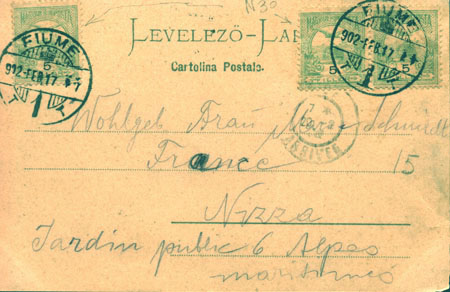 N 30
LEVELEZŐ-LAP
Cartolina Postale.
FIUME
902-FEB.17
1
FIUME
902-FEB.17
1
5
5
5
Wohlgeb Frau Schmidt
France 15
Nizza
Jardin public 6 Alpes
maritimes